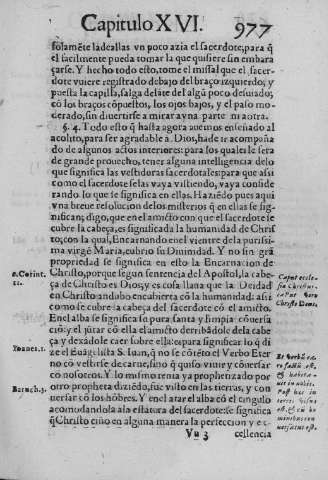 Capitulo XVI. 977
solamẽte ladeallas vn poco azia el sacerdote; para q̃
el facilmente pueda tomar la que quisiere sin embara
çarse. Y hecho todo esto, tome el missal que el sacer-
dote vuiere registrado debajo del braço yzquierdo; y
puesta la capilla, salga delãte del algũ poco desuiado;
cõ los braços cõpuestos, los ojos bajos, y el paso mo
derado, sin diuertirse a mirar ayna parte ni aotra.
§. 4. Todo esto q̃ hasta agora auemos enseñado al
acolito, para ser agradable a Dios, hade ir acompaña
do de algunos actos interiores: para los quales le sera
de grande prouecho, tener alguna intelligencia delo
que significan las vestiduras sacerdotales: para que assi
como el sacerdote se las vaya vistiendo, vaya conside
rando lo que se significa en ellas. Haziẽdo pues aqui
vna breue resolucion de los misterios q̃ en ellas se sig-
nifican; digo, que en el amicto con que el sacerdote se
cubre la cabeça, es significada la humanidad de Chris
to; con la qual, Encarnando en el vientre de la purissi-
ma virgẽ Maria, cubrio su Diuinidad. Y no sin grã
propriedad se significa en esto la Encarnacion de
Christo, porque segun sentencia del Apostol, la cabe-
ça de Christo es Dios, y es cosa llana que la Deidad
en Christo anduuo encubierta cõ la humanidad: assi
como se cubre la cabeça del sacerdote cõ el amicto.
En el alba se significa su pura santa y limpia cõuersa
ciõ; y el jũtar cõ ella el amicto derribãdole dela cabe
ça y dexãdole caer sobre ella: es para significar lo q̃ di
ze el Euãgelista S. Iuan, q̃ no se cõtẽto el Verbo Eter
no cõ vestirse de carne, sino q̃ quiso viuir y cõuersar
con nosotros. Y lo mismo tenia ya prophetizado por
otro propheta diziẽdo, fue visto en las tierras, y con
uersar cõ los hõbres. Y en el atar el alba cõ el cingulo
acomodandola a la estatura del sacerdote: se significa
q̃ Christo ciño en alguna manera la perfeccion y ex-
Vu 3 cellencia
1. Corint.
11.
Ioannes. 1.
Baruch. 3.
Caput
Christi Deus.